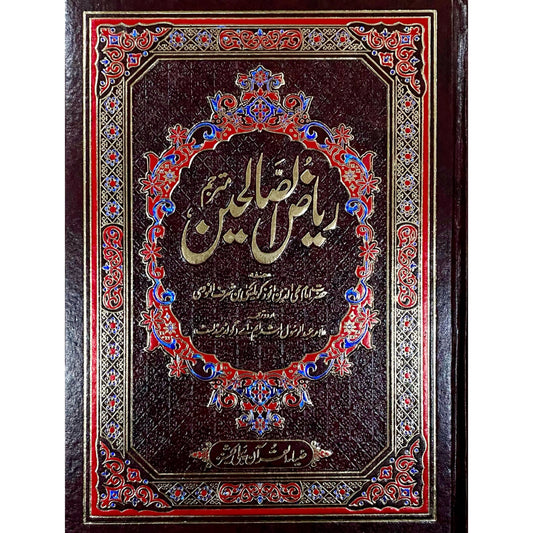 ریاض الصالحین مترجم
مصنفہ
حضرت امام محی الدین ابو زکریا یحییٰ بن شرف النووی
اردو ترجمہ
علامہ عبد الرسول ارشد
ضیاء القرآن پبلی کیشنز